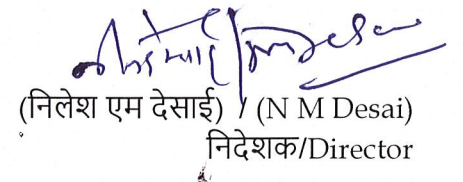 (निलेश एम देसाई) / (N M Desai)
निदेशक/Director